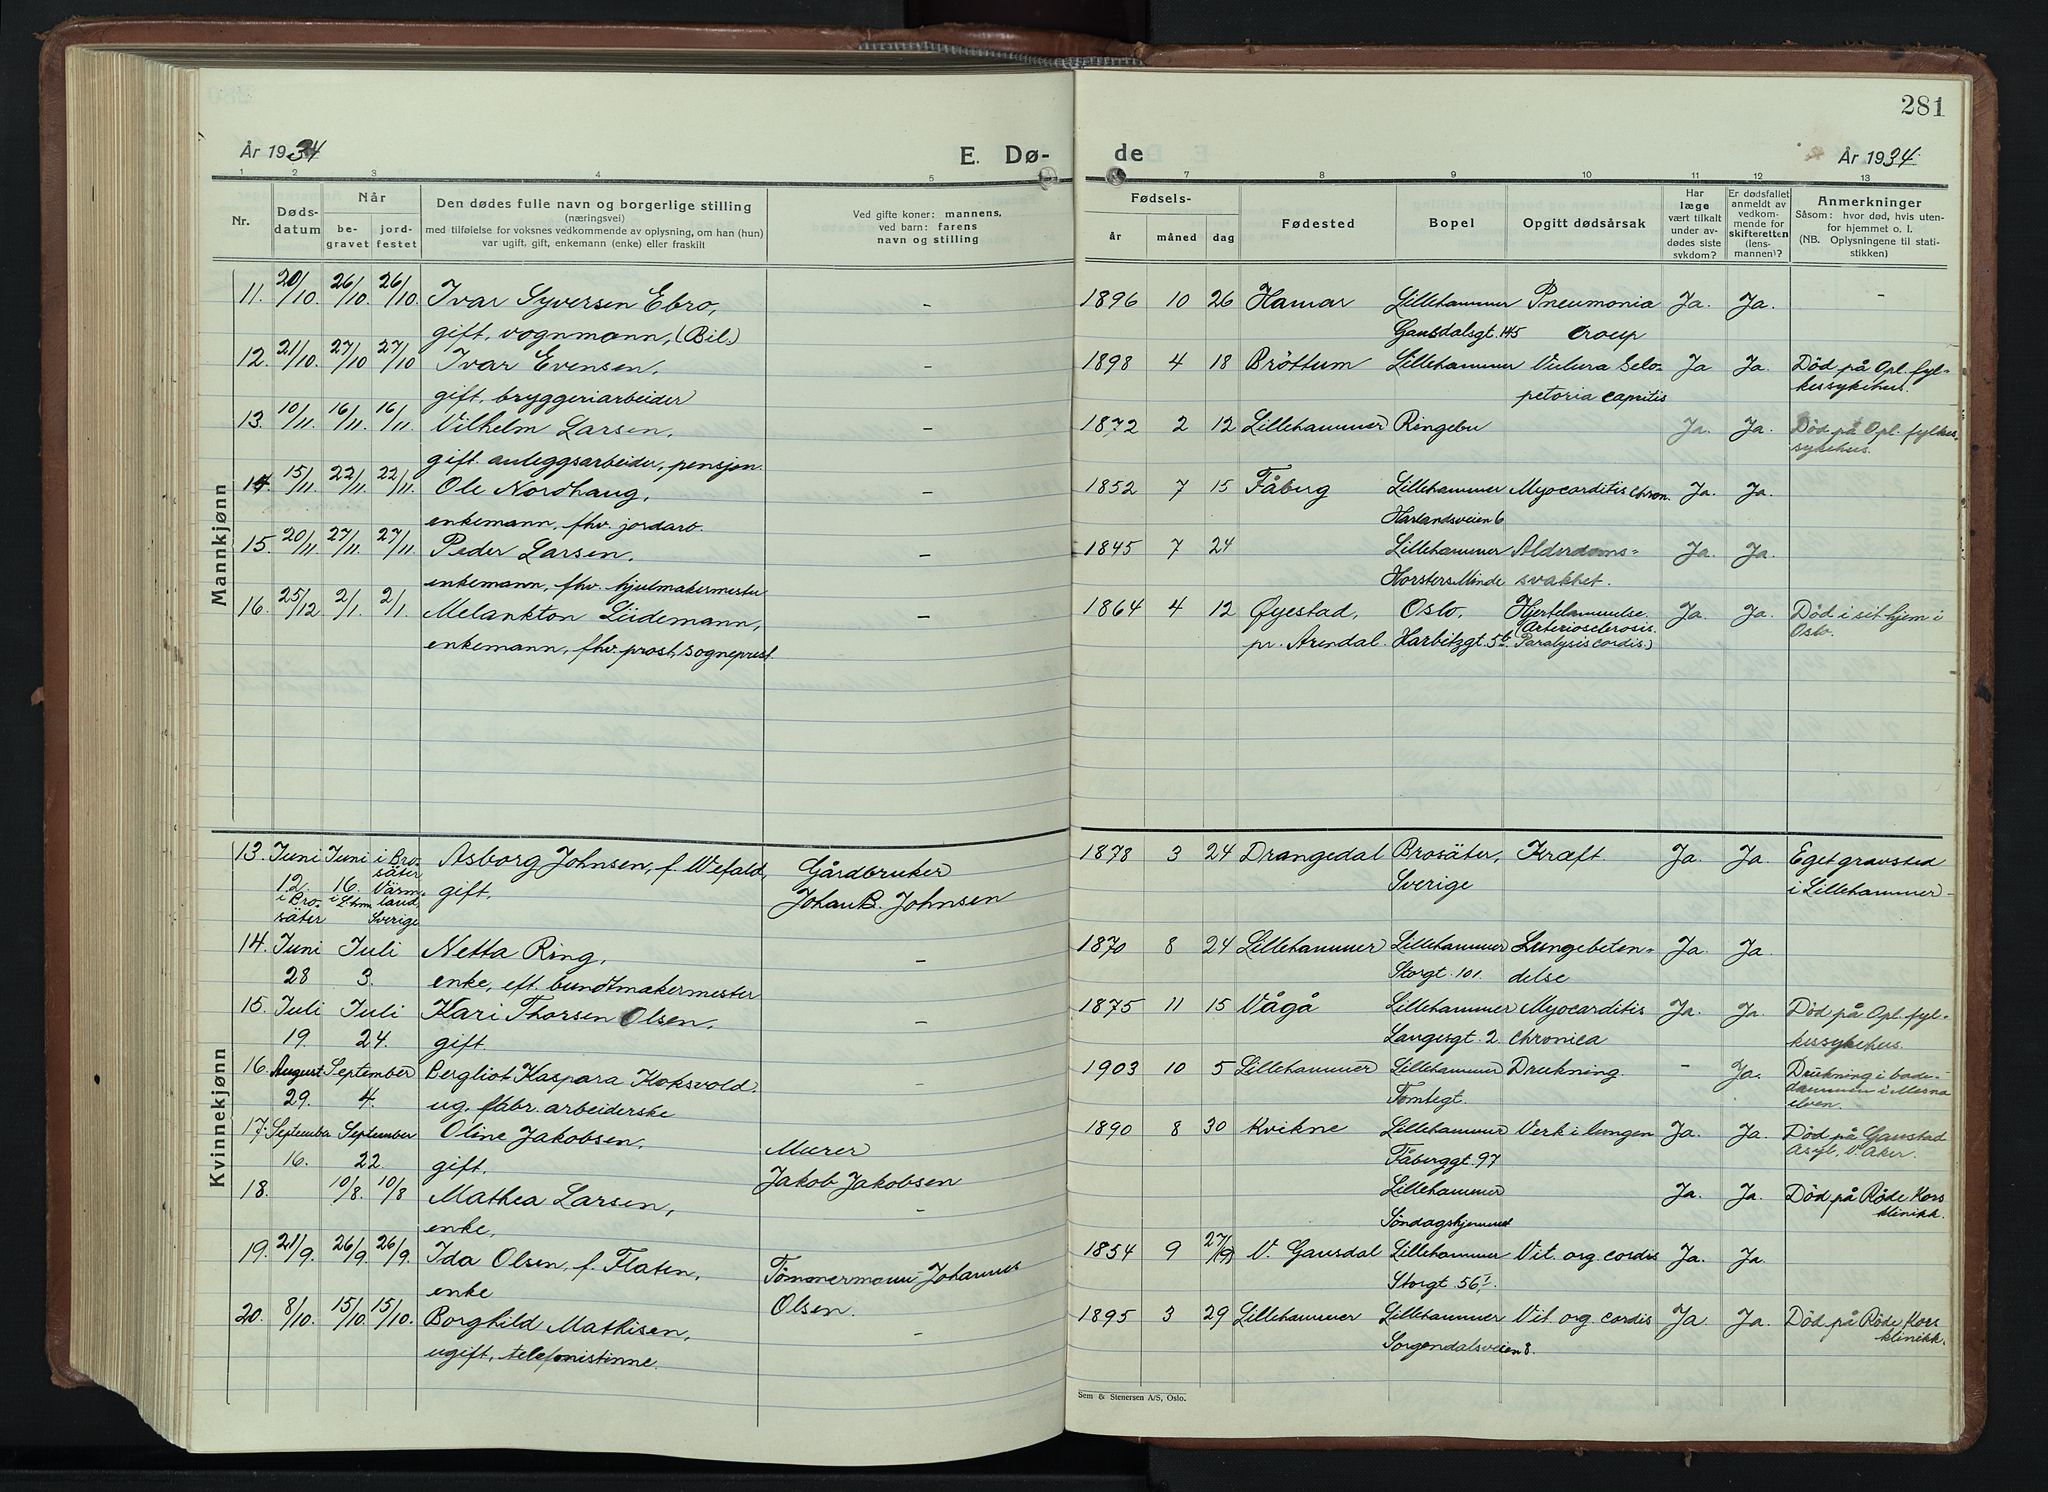 281
År 1934
E. Dø-
de
År 1934.
1 2 3 4 5
7 8 9 10 11 12 13
Nr.
Døds-
datum
Når
be-
gravet
jord-
festet
Den dødes fulle navn og borgerlige stilling
(næringsvei)
med tilføielse for voksnes vedkommende av oplysning, om han (hun)
var ugift, gift, enkemann (enke) eller fraskilt
Ved gifte koner: mannens,
ved barn: farens
navn og stilling
Fødsels-
år måned dag
Fødested
Bopel
Opgitt dødsårsak
Har
læge
vært tilkalt
under av-
dødes siste
sykdom?
Er dødsfallet
anmeldt av
vedkom-
mende for
skifteretten
(lens-
mannen)?
Anmerkninger
Såsom: hvor død, hvis uten-
for hjemmet o. l.
(NB. Oplysningene til stati-
stikken)
Mannkjønn
11. 20/10. 26/10 26/10. Ivar Syversen Ebro, - 1896 10 26 Hamar Lillehammer Pneumonia Ja. Ja. -
gift, vognmann, (Bil.) Gausdalsgt. 145 croup
12. 21/10. 27/10 27/10 Ivar Evensen, - 1898 4 18 Brøttum Lillehammer Vulnra Selo- Ja Ja. Død på Opl. fyl-
gift, bryggeriarbeider petoria capitis kessykehus.
13. 10/11. 16/11. 16/11. Vilhelm Larsen, - 1872 2 12 Lillehammer Ringebu Ja. Ja. Død på Opl. fylkes-
gift. anleggsarbeider, pensjon. sykehus.
14. 15/11. 22/11. 22/11. Ole Nordhaug, - 1852 7 15 Fåberg Lillehammer Myocarditis chron. Ja. Ja.
enkemann, fhv. jordarb. Harlandsveien 6
15. 20/11 27/11. 27/11 Peder Larsen, - 1845 7 24 Lillehammer Alderdoms- Ja. Ja.
enkemann, fhv. hjulmakermester Horsters Minde svakhet.
16. 25/12. 2/1. 2/1. Melankton Lüdemann, - 1864 4 12 Øyestad, Oslo, Hjertelammelse. Ja. Ja. Død i sit hjem i
enkemann, fhv. prost, sogneprest. pr. Arendal. Harbitzgt. 5b. (Arteriosclerosis. Oslo.
Paralysis cordis.)
Kvinnekjønn
13. Juni Juni i Bro- Asborg Johnsen, f. Wefald, Gårdbruker 1878 3 24 Drangedal Brosäter, Kræft. Ja. Ja. Eget gravsted
12. 16. säter gift, Johan B. Johnsen Sverige i Lillehammer
i Bro- i Lhm. Värm-
säter land,
Sverige
14. Juni Juli Netta Ring, - 1870 8 24 Lillehammer Lillehammer Lungebeten- Ja. Ja.
28 3. enke, eft. bundtmakermester Storgt. 101. delse
15. Juli Juli Kari Thorsen Olsen. - 1875 11 15 Vågå Lillehammer Myocarditis Ja. Ja. Død på Opl. fyl-
19. 24. gift. Langesgt. 2. chronica kessykehus.
16. August September Bergliot Kaspara Koksvold. - 1903 10 5 Lillehammer Lillehammer Drukning. - Ja. Drukning i bade-
29. 4. ug. fabr. arbeiderske Tomtegt. dammen i Mesna
elven.
17. September September Oline Jakobsen, Murer 1890 8 30 Kvikne Lillehammer Verk i lungen Ja. Ja. Død på Gaustad
16. 22. gift. Jakob Jakobsen Fåberggt. 97 Asyl, V. Aker.
18. 10/8. 10/8 Mathea Larsen, - Lillehammer Ja. Ja. Død på Røde Kors
enke, Søndagshjemmet klinikk.
19. 21/9. 26/9. 26/9. Ida Olsen, f. Flaten, Tømmermann Johannes 1854 9 27/(9) V. Gausdal Lillehammer Vit. org. cordis Ja. Ja.
enke Olsen. Storgt. 56 I.
20. 8/10. 15/10. 15/10. Borghild Mathisen, - 1895 3 29 Lillehammer Lillehammer Vit. org cordis Ja Ja. Død på Røde Kors
ugift, telefonistinne. Sorgendalsveien 8. klinikk.
Sem & Stenersen A/S, Oslo.